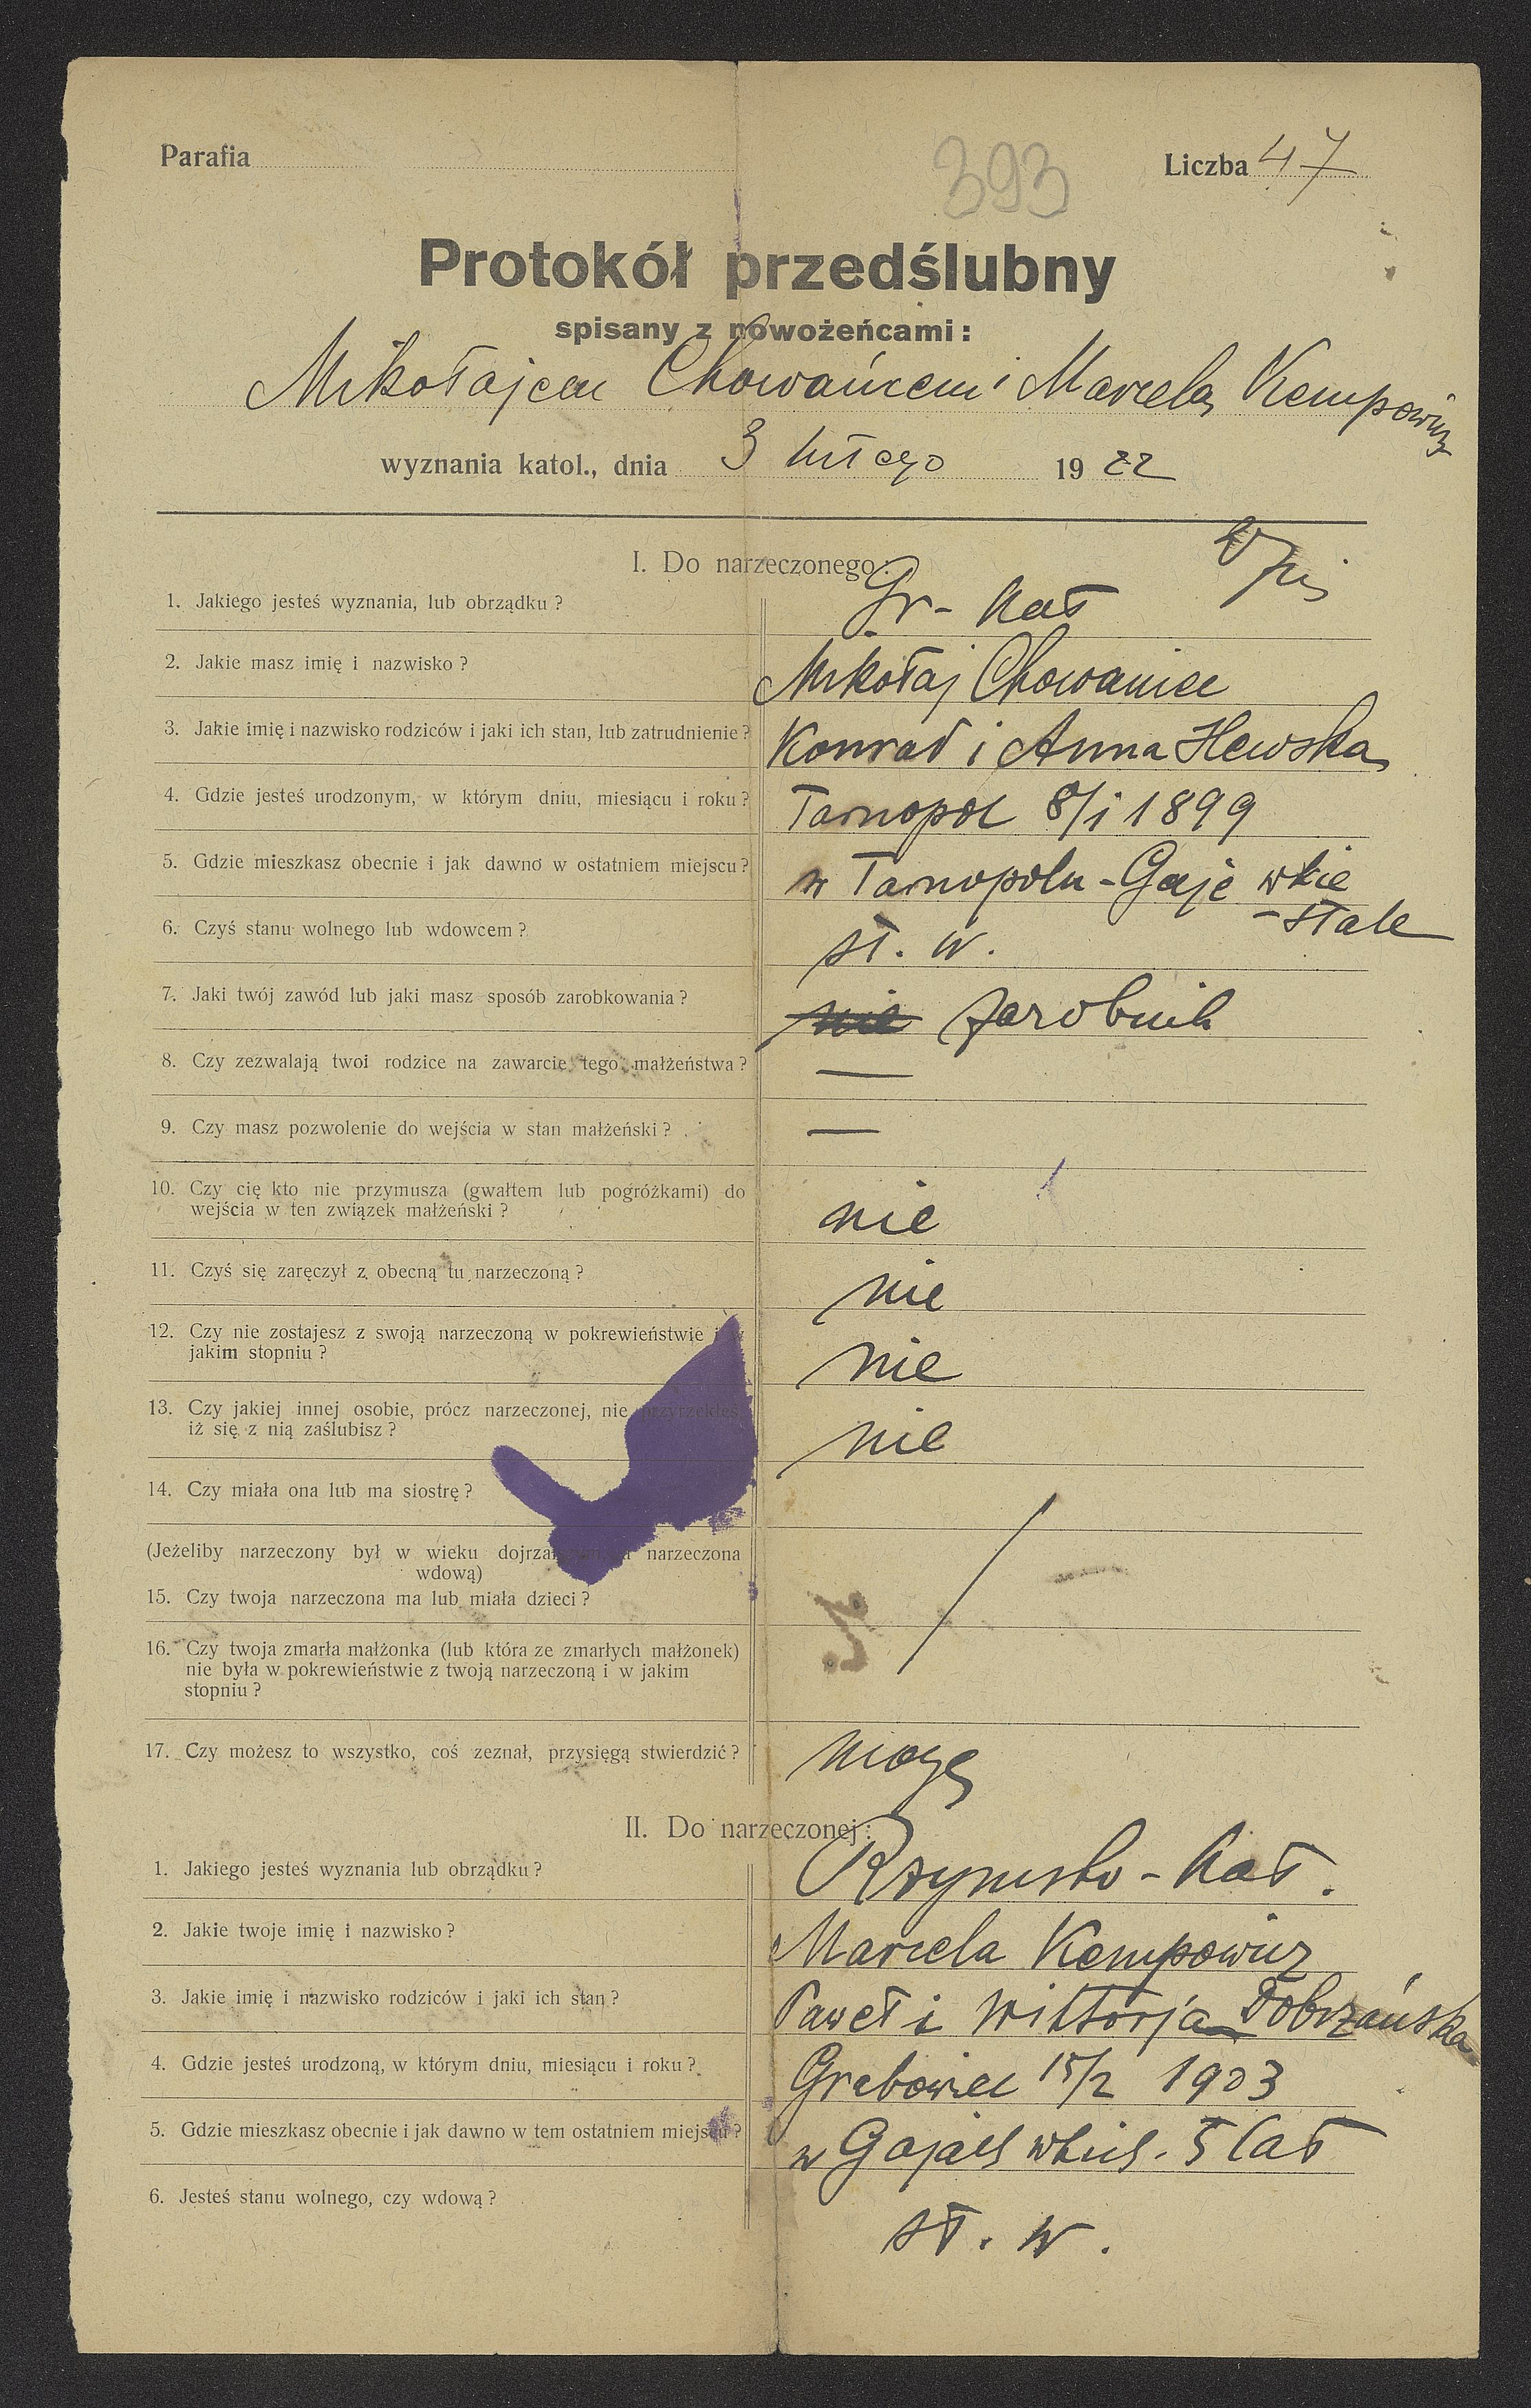 Parafia
393
Liczba 47
Protokół przedślubny
spisany z nowożeńcami:
Mikołajem Chowańcem i Marcelą Kempowicz
wyznania katol., dnia 3 lutego 1922
I. Do narzeczonego:
1. Jakiego jesteś wyznania, lub obrządku? Gr-kat
2. Jakie masz imię i nazwisko? Mikołaj Chowaniec
3. Jakie imię i nazwisko rodziców i jaki ich stan, lub zatrudnienie? Konrad i Anna
4. Gdzie jesteś urodzonym, w którym dniu, miesiącu i roku? Tarnopol 8/1 1899
5. Gdzie mieszkasz obecnie i jak dawno w ostatniem miejscu? w Tarnopolu-Gaje wkie
-stale
6. Czyś stanu wolnego lub wdowcem? st. w.
7. Jaki twój zawód lub jaki masz sposób zarobkowania? nie zarobnik
8. Czy zezwalają twoi rodzice na zawarcie tego małżeństwa? —
9. Czy masz pozwolenie do wejścia w stan małżeński? —
10. Czy cię kto nie przymusza (gwałtem lub pogróżkami) do
wejścia w ten związek małżeński? nie
11. Czyś się zaręczył z obecną tu narzeczoną? nie
12. Czy nie zostajesz z swoją narzeczoną w pokrewieństwie i w
jakim stopniu? nie
13. Czy jakiej innej osobie, prócz narzeczonej, nie przyrzekłeś,
iż się z nią zaślubisz? nie
14. Czy miała ona lub ma siostrę?
(Jeżeliby narzeczony był w wieku narzeczona
wdową)
15. Czy twoja narzeczona ma lub miała dzieci?
16. Czy twoja zmarła małżonka (lub która ze zmarłych małżonek)
nie była w pokrewieństwie z twoją narzeczoną i w jakim
stopniu?
17. Czy możesz to wszystko, coś zeznał, przysięgą stwierdzić? mogę
II. Do narzeczonej:
1. Jakiego jesteś wyznania lub obrządku? Rzymsko-kat.
2. Jakie twoje imię i nazwisko? Marcela Kempowicz
3. Jakie imię i nazwisko rodziców i jaki ich stan? Paweł i Wiktorja Dobrzańska
4. Gdzie jesteś urodzoną, w którym dniu, miesiącu i roku? Grabowiec 15/2 1903
5. Gdzie mieszkasz obecnie i jak dawno w tem ostatniem miejscu? w Gajach wkich. 5 lat
6. Jesteś stanu wolnego, czy wdową? st. w.